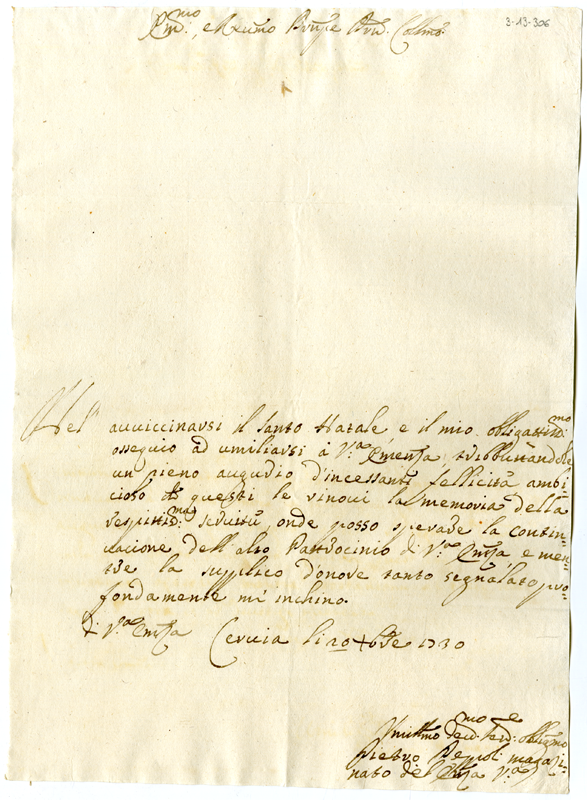 3-13-306
Em.mo, e Re
Nel' avviccinarsi il Santo Natale e il mio obligattiss.mo
osseguio ad umiliarsi à V.ra Emenza, tribbuttandole
un pieno augurio d'incessanti fellicità ambi
cioso di questi le rinovi la memoria della
respittis.ma servitù, onde posso sperare la contin,
uacione dell'alto Pattrocinio di V.ra Emza, e men=
tre la supplico d'onore tanto segnalato pro=
fondamente m'inchino.
V.ra Emza Cervia li 20 Xbre 1730
Umill.mo dev. ser. oblig.mo
Pietro
nato del Emza V.ra